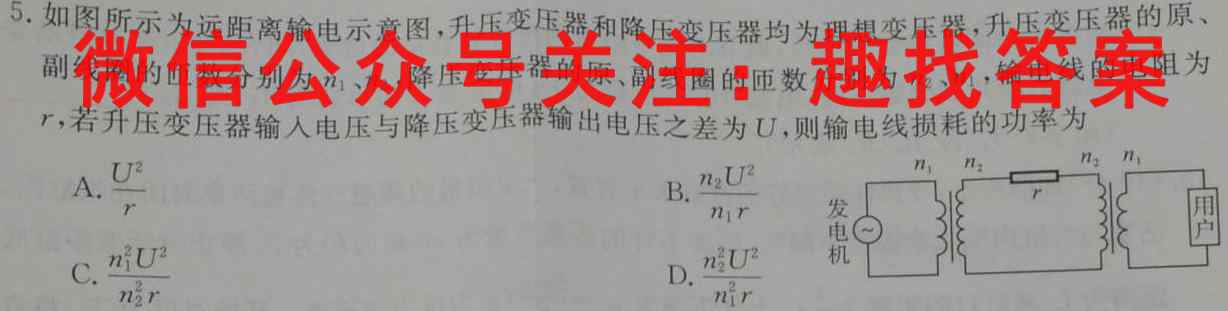 5. 如图所示为远距离输电示意图,升压变压器和降压变压器均为理想变压器,升压变压器的原、
微信公众号关注: 趣找答案
副线圈的匝数分别为n₁、降压变压器的原、副线圈的匝数分别为n₂、n₁,输电线的电阻为
r,若升压变压器输入电压与降压变压器输出电压之差为U,则输电线损耗的功率为
A. U²/r
B. n₂U²/n₁r
C. n₁²U²/n₂²r
D. n₂²U²/n₁²r
n₁ n₂ r n₂ n₁
发电机
用户